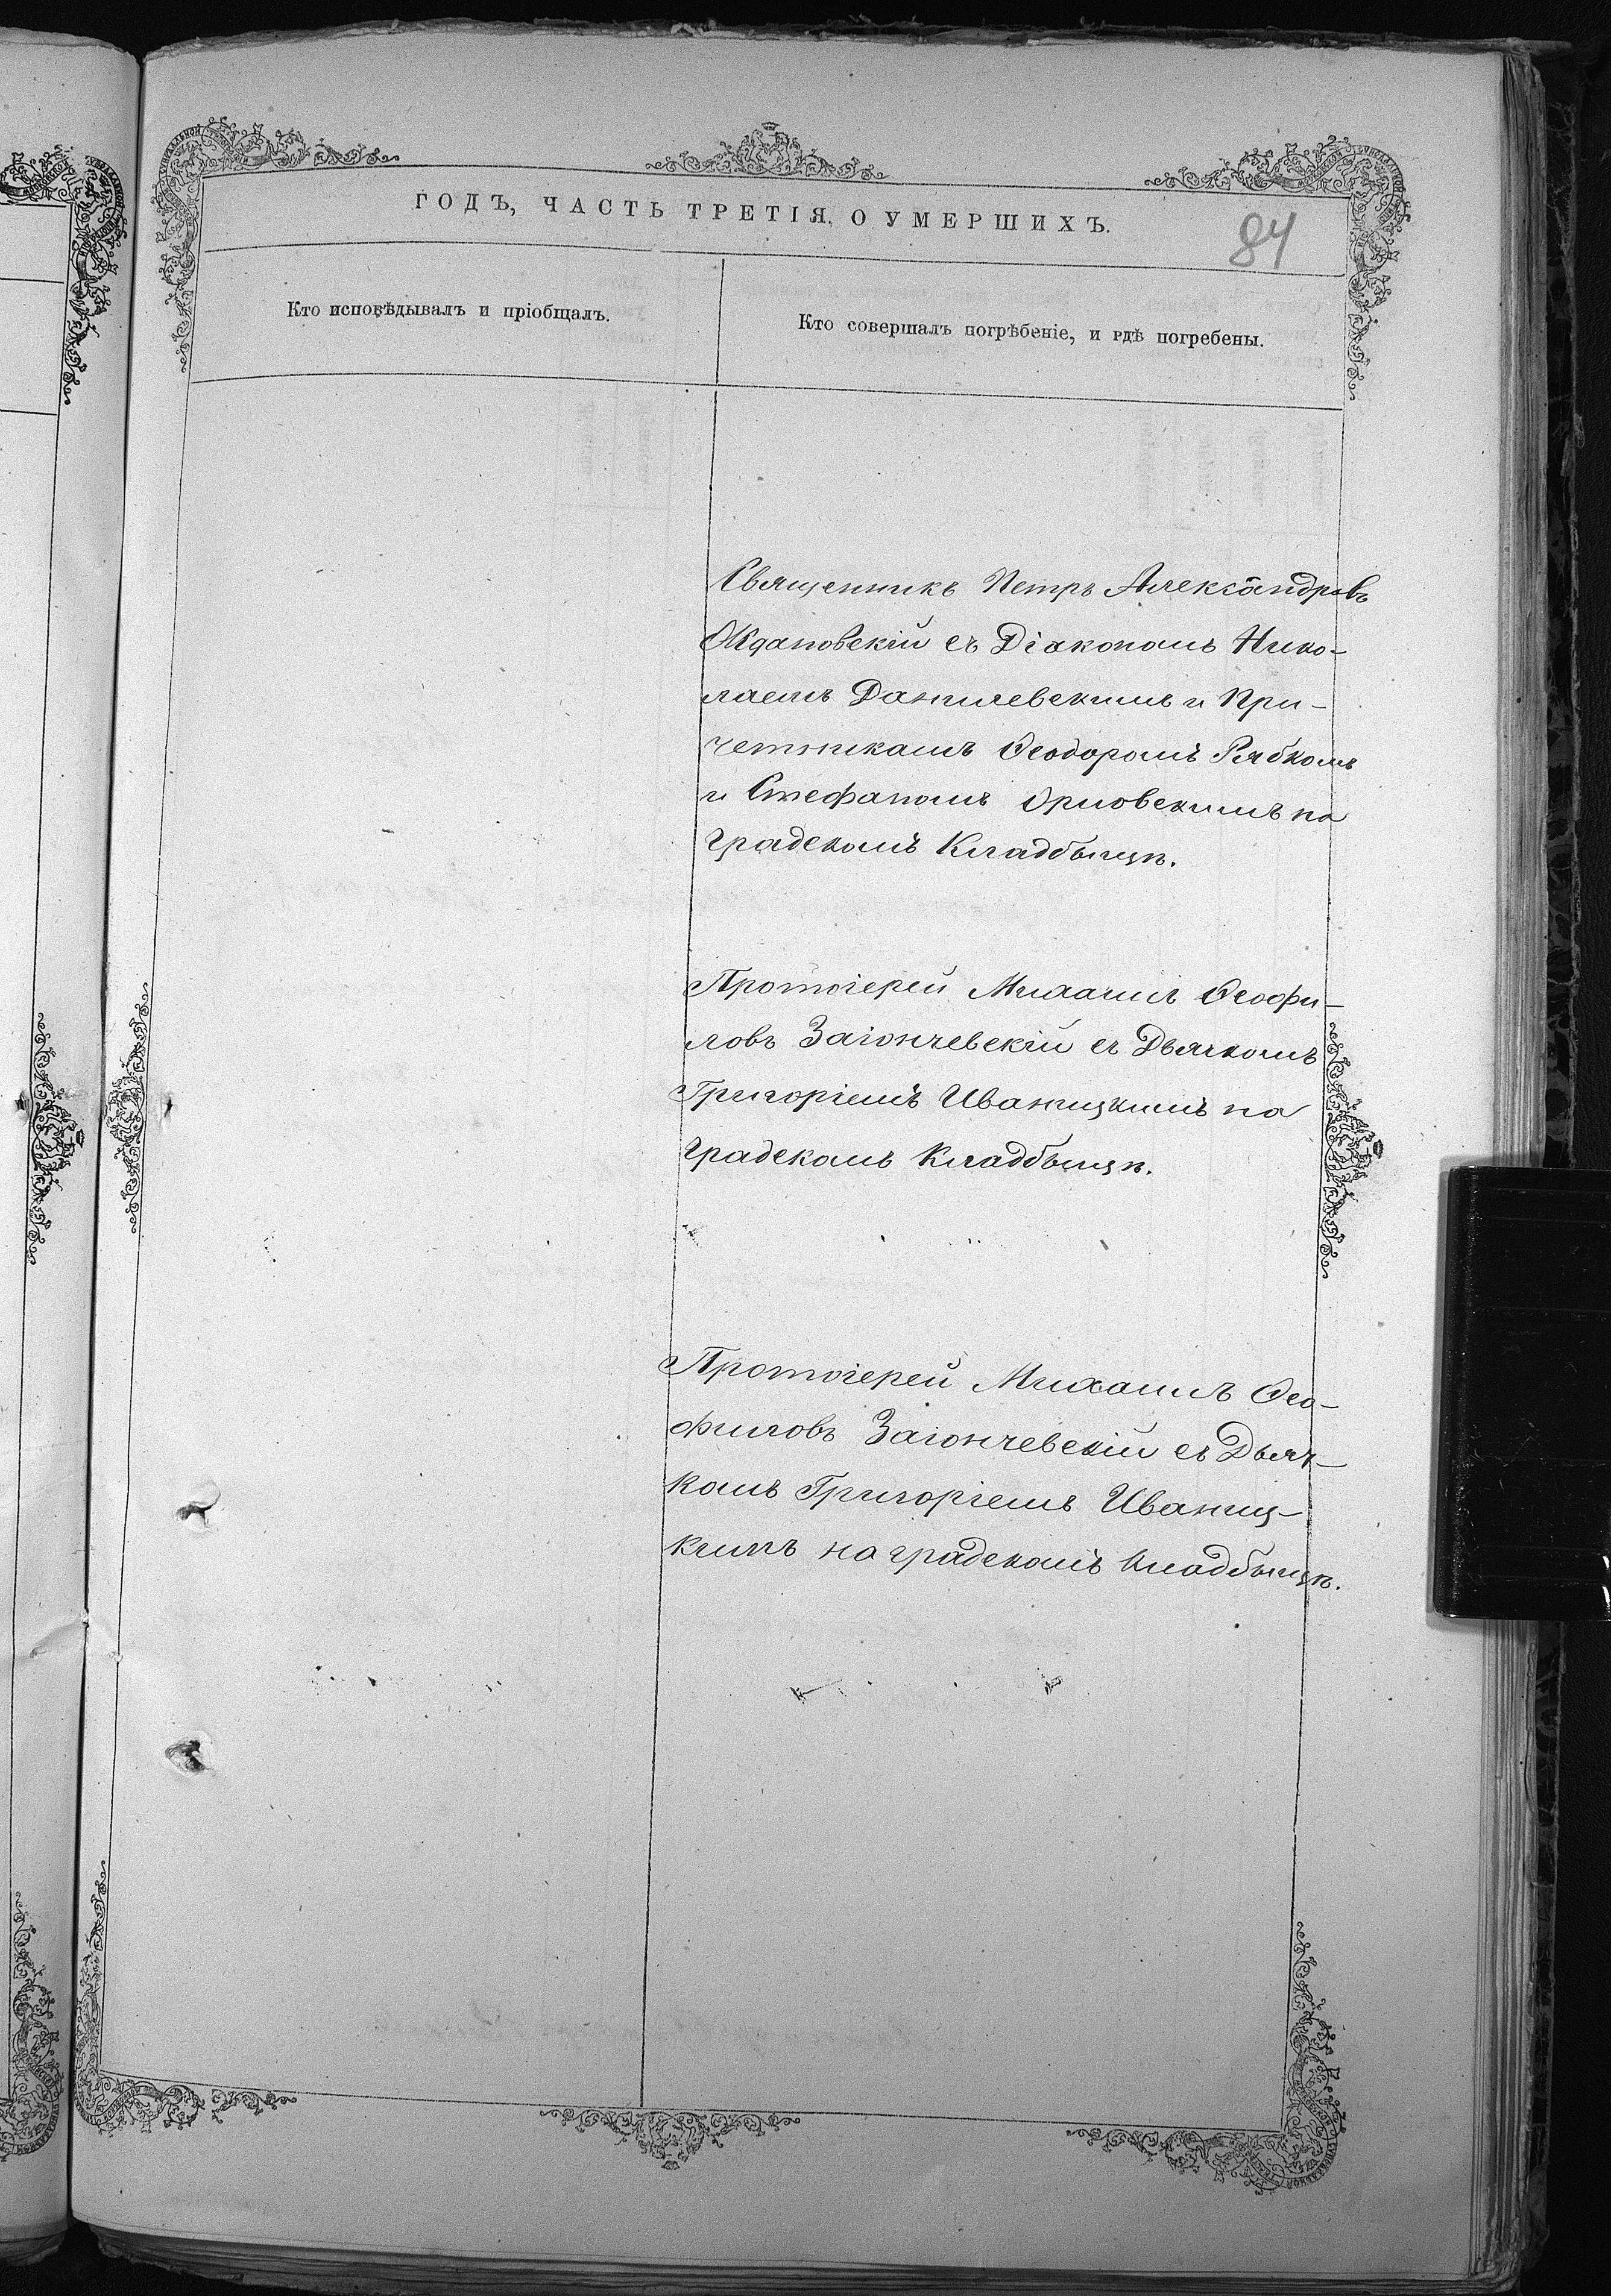 ГОДЪ, ЧАСТЬ ТРЕТІЯ, О УМЕРШИХЪ.
84
Кто исповѣдывалъ и пріобщалъ.
Кто совершалъ погрѣбеніе, и гдѣ погребены.
Священникъ Петръ Александровъ
Ждановскій съ Діакономъ Нико-
лаемъ Данилевскимъ и При-
четникамъ Ѳеодоромъ Рябкомъ
и Стефаномъ Орловскимъ на
градскомъ Кладбыщѣ.
Протоіерей Михаилъ Ѳеофи-
ловъ Заіончевскій съ Дьячкомъ
Григоріемъ Иваницкимъ на
градскомъ Кладбыщѣ.
Протоіерей Михаилъ Ѳео-
филовъ Заіончевскій съ Дьяч-
комъ Григоріемъ Иваниц-
кимъ на градскомъ Кладбыщѣ.